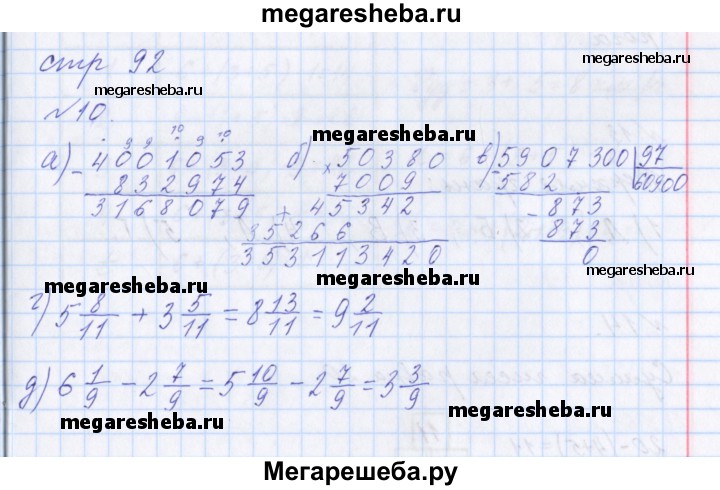 megaresheba.ru
стр 92
megaresheba.ru
megaresheba.ru
№10.
а) - 4001053
832974
3168079
б) × 50380
7009
+ 45342
35266
353113420
в) - 5907300 | 97
60900
582
- 873
873
0
megaresheba.ru
megaresheba.ru
г) 5 8/11 + 3 5/11 = 8 13/11 = 9 2/11
д) 6 1/9 - 2 7/9 = 5 10/9 - 2 7/9 = 3 3/9
megaresheba.ru
megaresheba.ru
Мегарешеба.ру